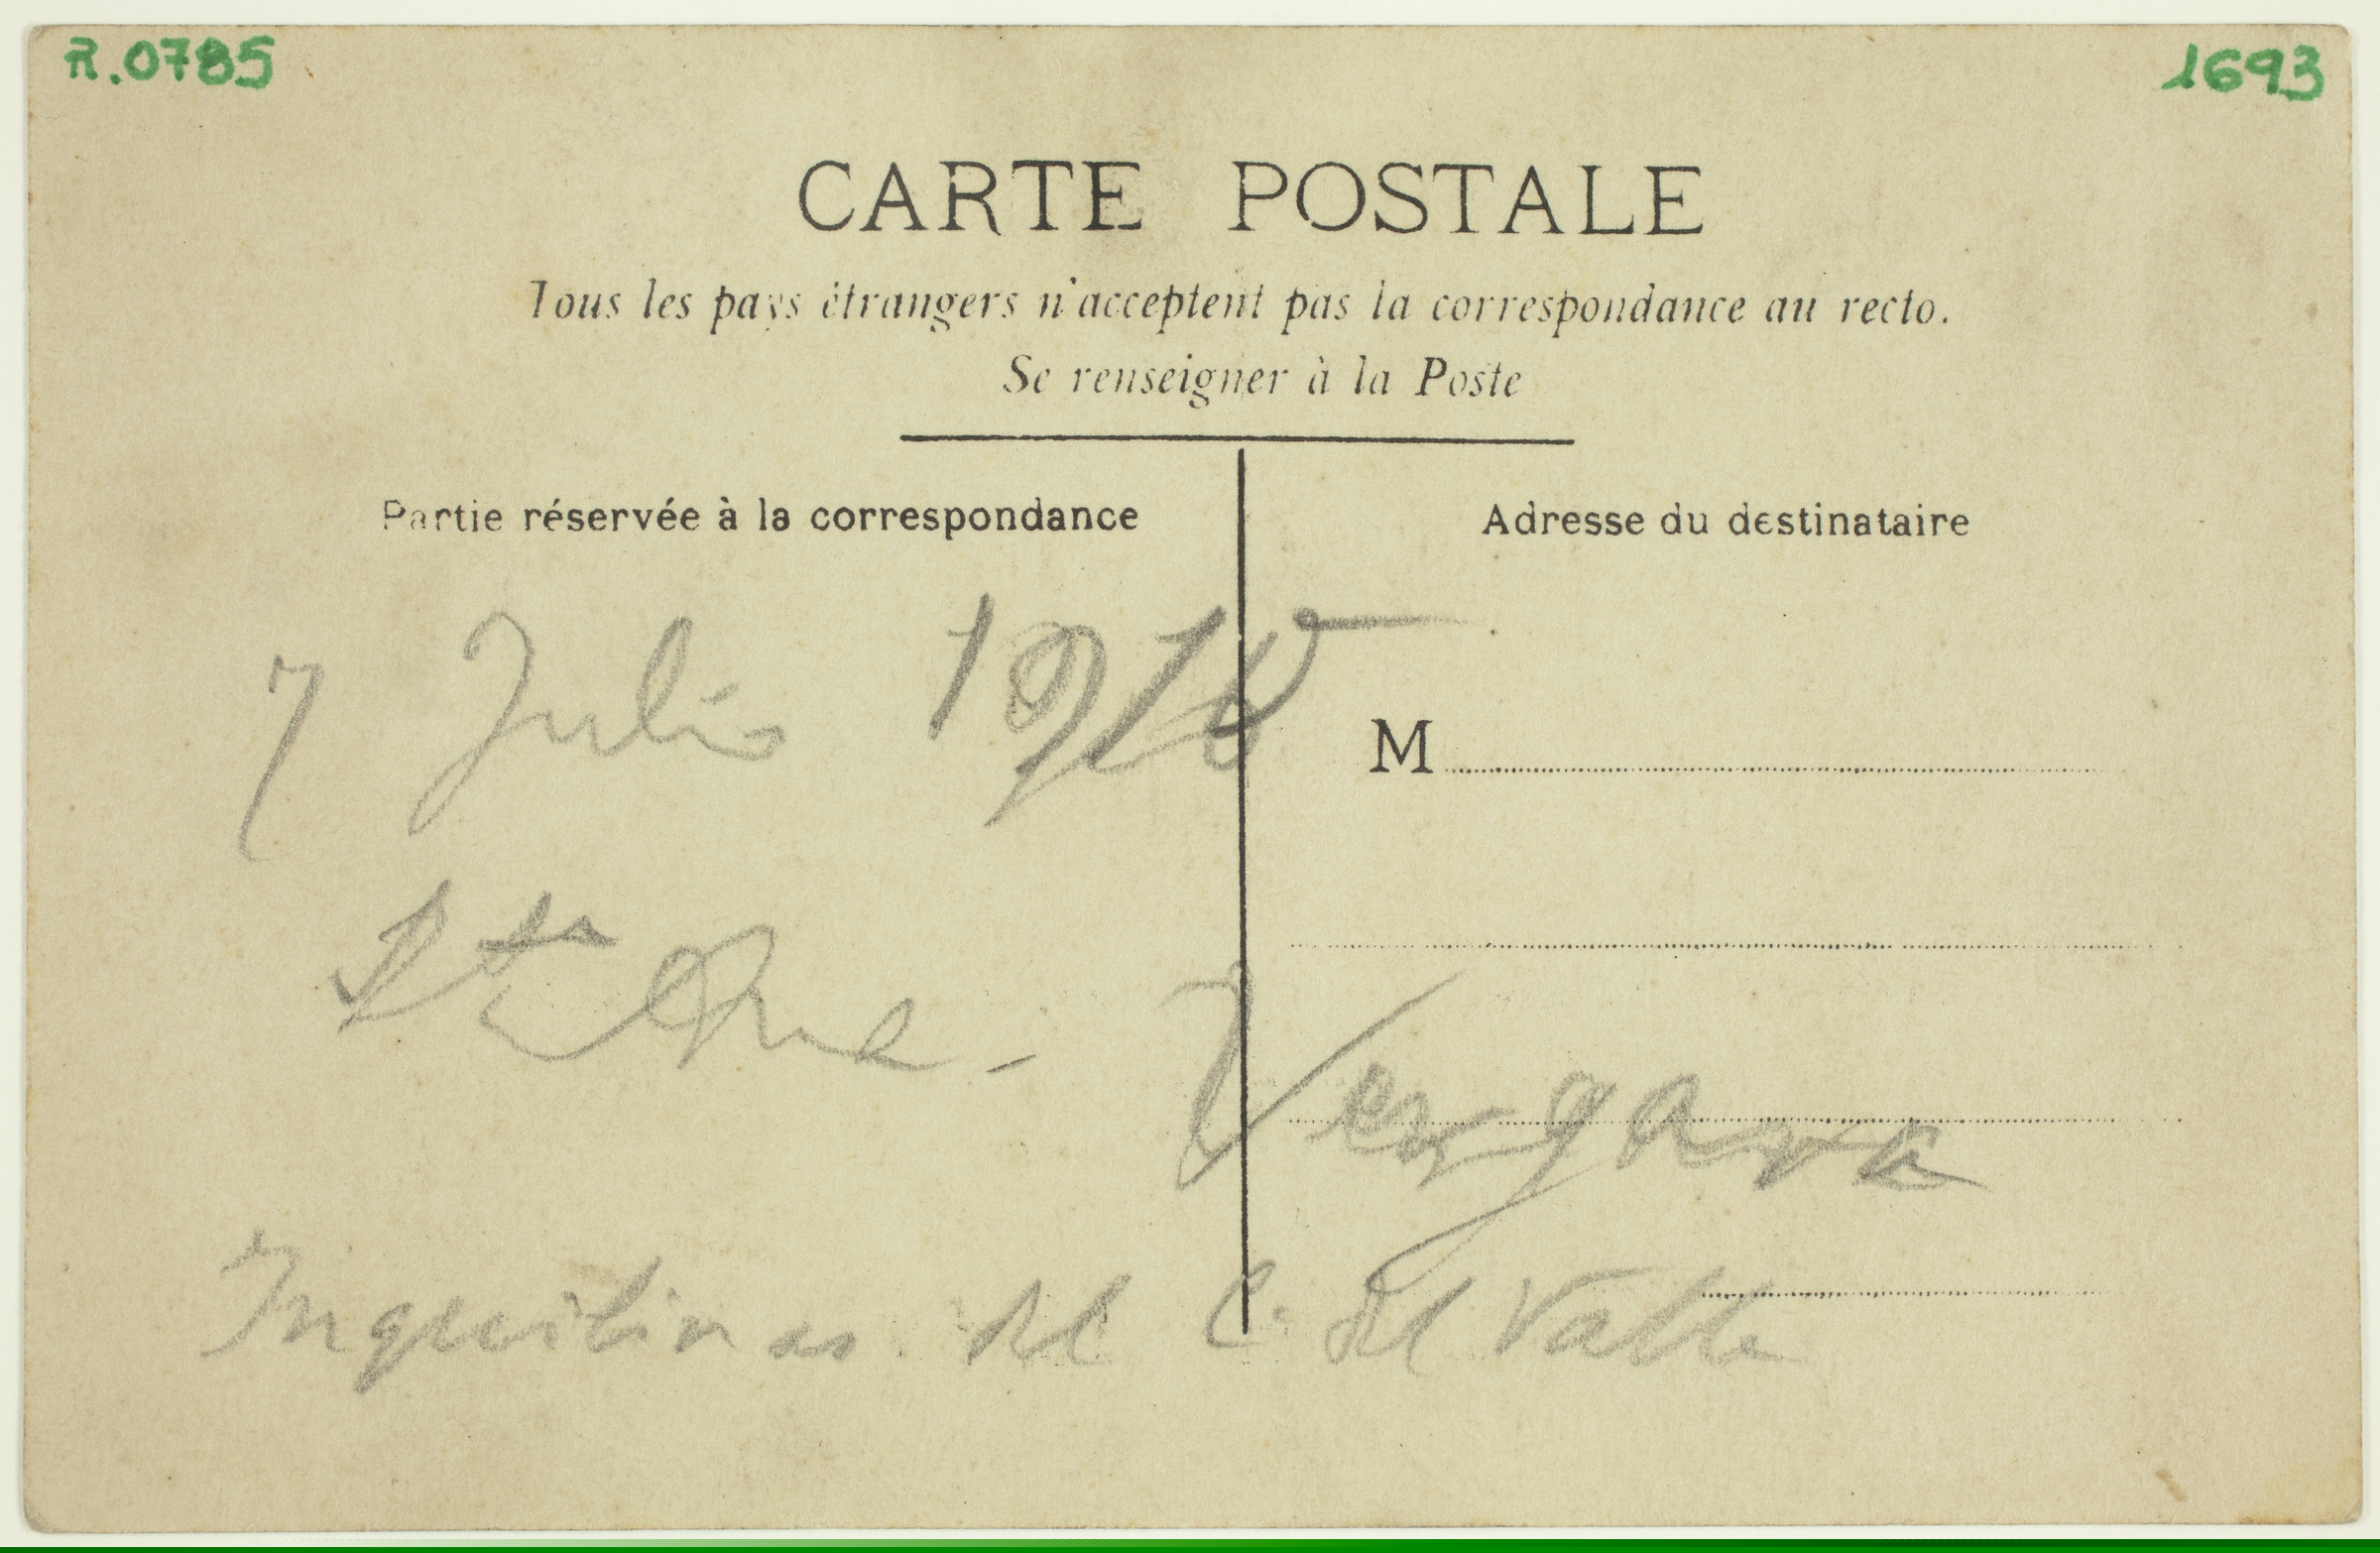 R.0785 1693
CARTE POSTALE
Tous les pays étrangers n'acceptent pas la correspondance au recto.
Se renseigner à la Poste
Partie réservée à la correspondance
Adresse du destinataire
7 Julio 1915
M
Sta Ana - Vergara
Inquilinas del C. del Valle